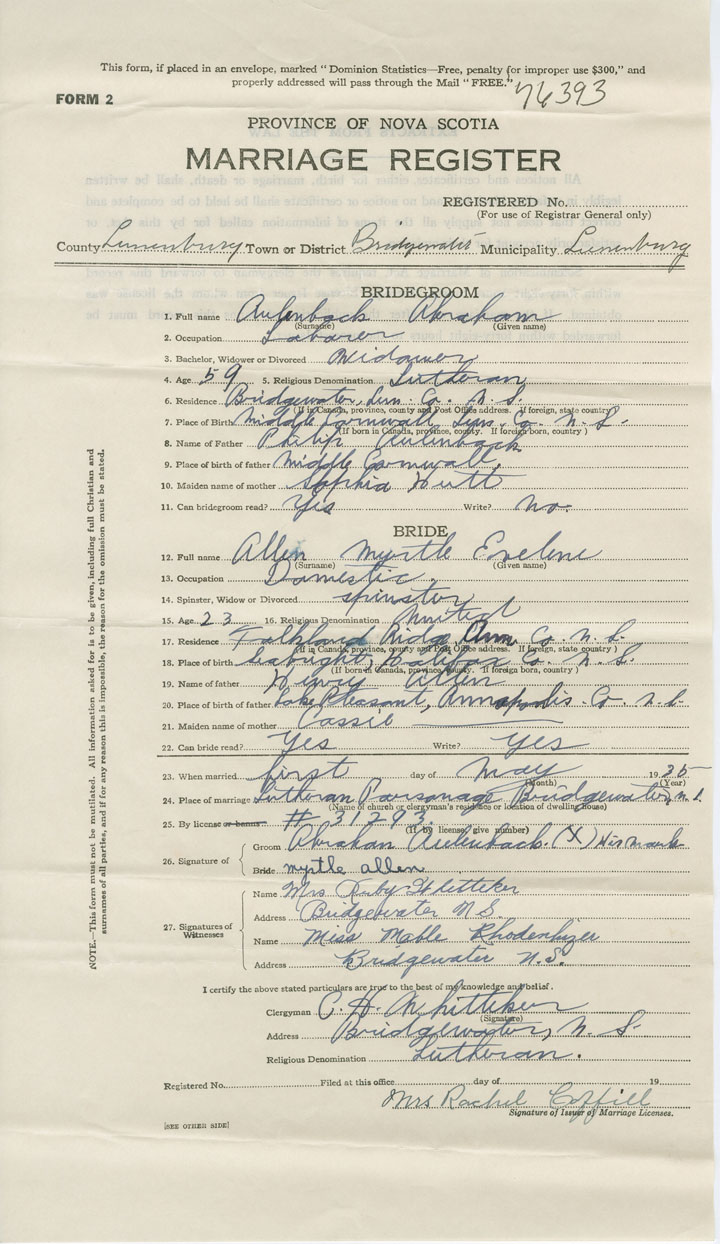 This form, if placed in an envelope, marked "Dominion Statistics—Free, penalty for improper use $300," and
properly addressed will pass through the Mail "FREE."
76393
FORM 2
PROVINCE OF NOVA SCOTIA
MARRIAGE REGISTER
REGISTERED No.
(For use of Registrar General only)
County Lunenburg Town or District Bridgewater Municipality Lunenburg
BRIDEGROOM
1. Full name Aulenback Abraham
(Surname) (Given name)
2. Occupation Laborer
3. Bachelor, Widower or Divorced Widower
4. Age 59 5. Religious Denomination Lutheran
6. Residence Bridgewater, Lun. Co. N. S.
(If in Canada, province, county and Post Office address. If foreign, state country)
7. Place of Birth Middle Cornwall, Lun. Co. N. S.
(If born in Canada, province, county. If foreign born, country)
8. Name of Father Philip Aulenback
9. Place of birth of father Middle Cornwall,
10. Maiden name of mother Sophia Hutt
11. Can bridegroom read? Yes Write? No.
BRIDE
12. Full name Allen Myrtle Evelene
(Surname) (Given name)
13. Occupation Domestic.
14. Spinster, Widow or Divorced spinster
15. Age 23 16. Religious Denomination United
17. Residence Falkland Ridge, Ann. Co. N. S.
(If in Canada, province, county and Post Office address. If foreign, state country)
18. Place of birth Seabright, Halifax Co. N. S.
(If born in Canada, province, county. If foreign born, country)
19. Name of father Allen
20. Place of birth of father Lake Pleasant, Annapolis. Co. N. S.
21. Maiden name of mother Cassie
22. Can bride read? Yes Write? Yes
23. When married first day of May 1935
(Month) (Year)
24. Place of marriage Lutheran Parsonage, Bridgewater, N. S.
(Name of church or clergyman's residence or location of dwelling house)
25. By license or banns # 31293
(If by license, give number)
26. Signature of
Groom Abraham Aulenback. (X) His mark
Bride myrtle allen
27. Signatures of Witnesses
Name Mrs Ruby Whitteker
Address Bridgewater N.S.
Name Miss Mable Rhodenhizer
Address Bridgewater N.S.
I certify the above stated particulars are true to the best of my knowledge and belief.
Clergyman C. H. Whitteker
(Signature)
Address Bridgewater, N. S.
Religious Denomination Lutheran.
Registered No. Filed at this office day of 19
Mrs Rachel Coffill
Signature of Issuer of Marriage Licenses.
[SEE OTHER SIDE]
NOTE.—This form must not be mutilated. All information asked for is to be given, including full Christian and
surnames of all parties, and if for any reason this is impossible, the reason for the omission must be stated.